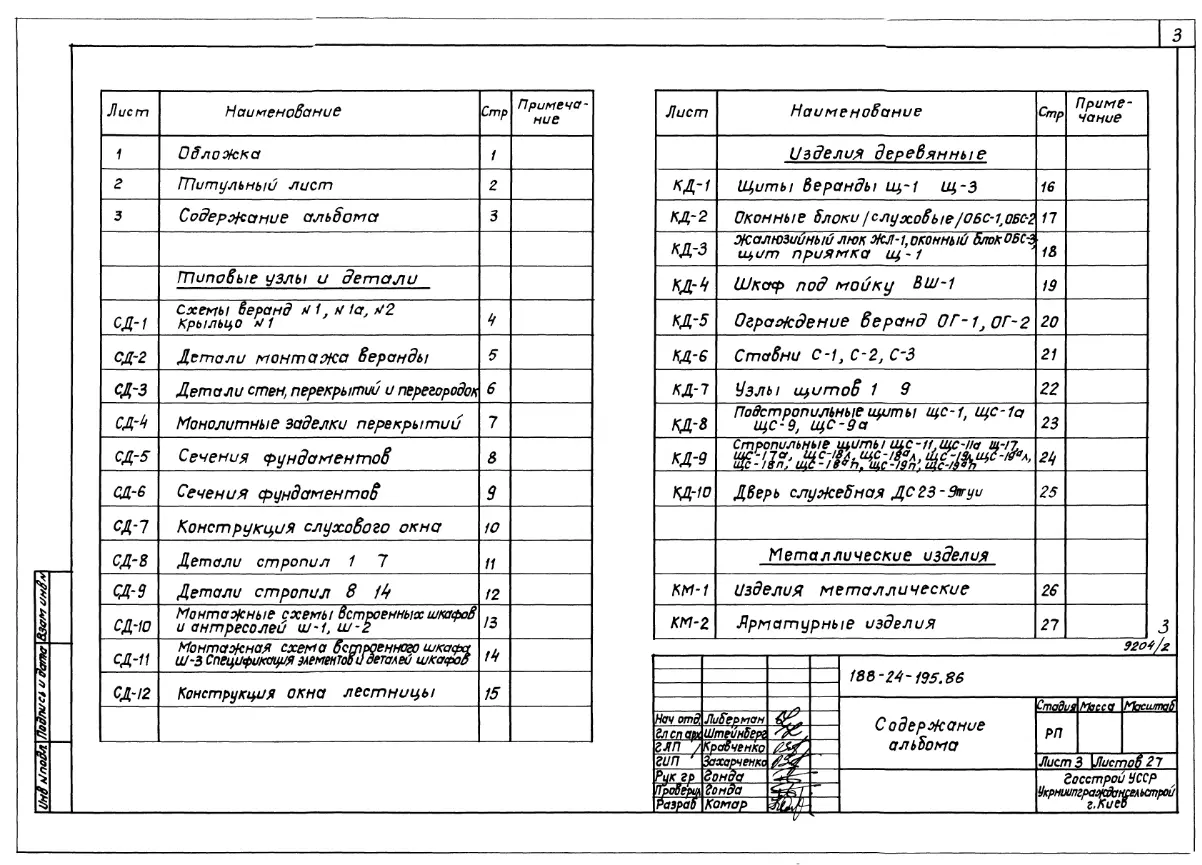 3
Лист Наименование Стр Примеча-
ние
1 Обложка 1
2 Титульный лист 2
3 Содержание альбома 3
Типовые узлы и детали
СД-1 Схемы веранд №1, №1а, №2
Крыльцо №1 4
СД-2 Детали монтажа веранды 5
СД-3 Детали стен, перекрытий и перегородок 6
СД-4 Монолитные заделки перекрытий 7
СД-5 Сечения фундаментов 8
СД-6 Сечения фундаментов 9
СД-7 Конструкция слухового окна 10
СД-8 Детали стропил 1 7 11
СД-9 Детали стропил 8 14 12
СД-10 Монтажные схемы встроенных шкафов
и антресолей Ш-1, Ш-2 13
СД-11 Монтажная схема встроенного шкафа
Ш-3 Спецификация элементов и деталей шкафов 14
СД-12 Конструкция окна лестницы 15
Лист Наименование Стр Приме-
чание
Изделия деревянные
КД-1 Щиты веранды Щ-1 Щ-3 16
КД-2 Оконные блоки /слуховые/ ОБС-1, ОБС-2 17
КД-3 Жалюзийный люк ЖЛ-1, оконный блок ОБС-3,
щит приямка Щ-1 18
КД-4 Шкаф под мойку ВШ-1 19
КД-5 Ограждение веранд ОГ-1, ОГ-2 20
КД-6 Ставни С-1, С-2, С-3 21
КД-7 Узлы щитов 1 9 22
КД-8 Подстропильные щиты ЩС-1, ЩС-1а
ЩС-9, ЩС-9а 23
КД-9 Стропильные щиты ЩС-11, ЩС-11а Щ-17,
ЩС-17а, ЩС-18л, ЩС-18ал, ЩС-19л, ЩС-19ал,
ЩС-18п, ЩС-18ап, ЩС-19п, ЩС-19ап 24
КД-10 Дверь служебная ДС 23-9 25
Металлические изделия
КМ-1 Изделия металлические 26
КМ-2 Арматурные изделия 27
3
9204/2
188-24-195.86
Содержание
альбома
Стадия Масса Масштаб
РП
Лист 3 Листов 27
Госстрой УССР
Укрниипграждансельстрой
г. Киев
Нач отд Либерман
Гл сп арх Штейнберг
ГАП Кравченко
ГИП Захарченко
Рук гр Гонда
Проверил Гонда
Разраб Комар
Инв № подл. Подпись и дата Взам инв №